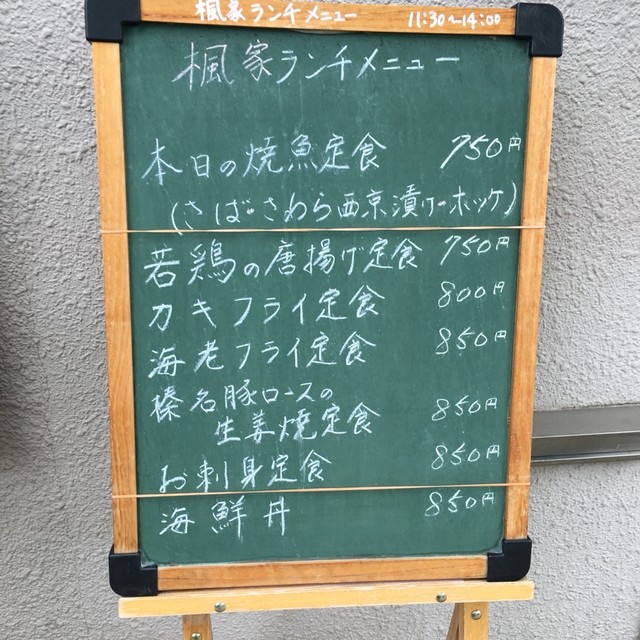 楓家ランチメニュー 11:30~14:00
楓家ランチメニュー
本日の焼魚定食 750円
(さば・さわら西京漬け・ホッケ)
若鶏の唐揚げ定食 750円
カキフライ定食 800円
海老フライ定食 850円
榛名豚ロースの
生姜焼定食 850円
お刺身定食 850円
海鮮丼 850円